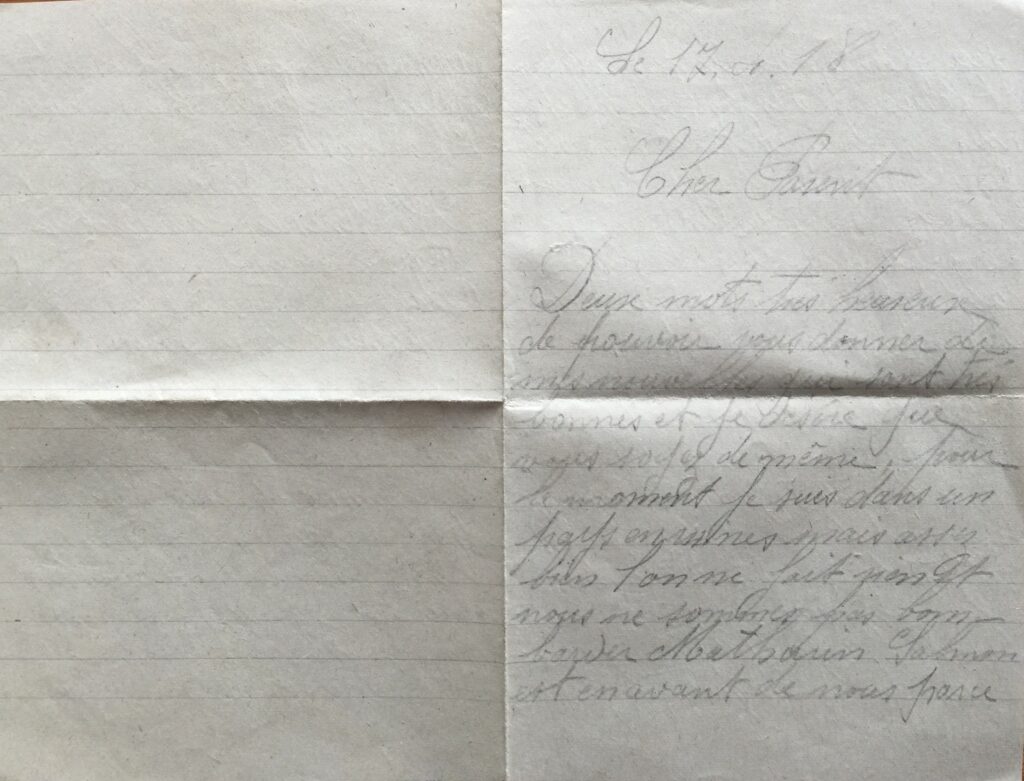 Le 17. 1. 18
Cher Parent
Deux mots très heureux
de pouvoir vous donner de
mes nouvelles qui sont très
bonnes et je désire que
vous soyez de même, pour
le moment je suis dans un
pays en ruines mais assez
bien l'on ne fait rien et
nous ne sommes pas bom-
barder Mathurin Salmon
est en avant de nous parce